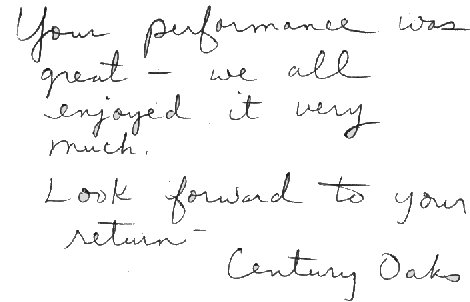 Your performance was
great – we all
enjoyed it very
much.
Look forward to your
return –
Century Oaks